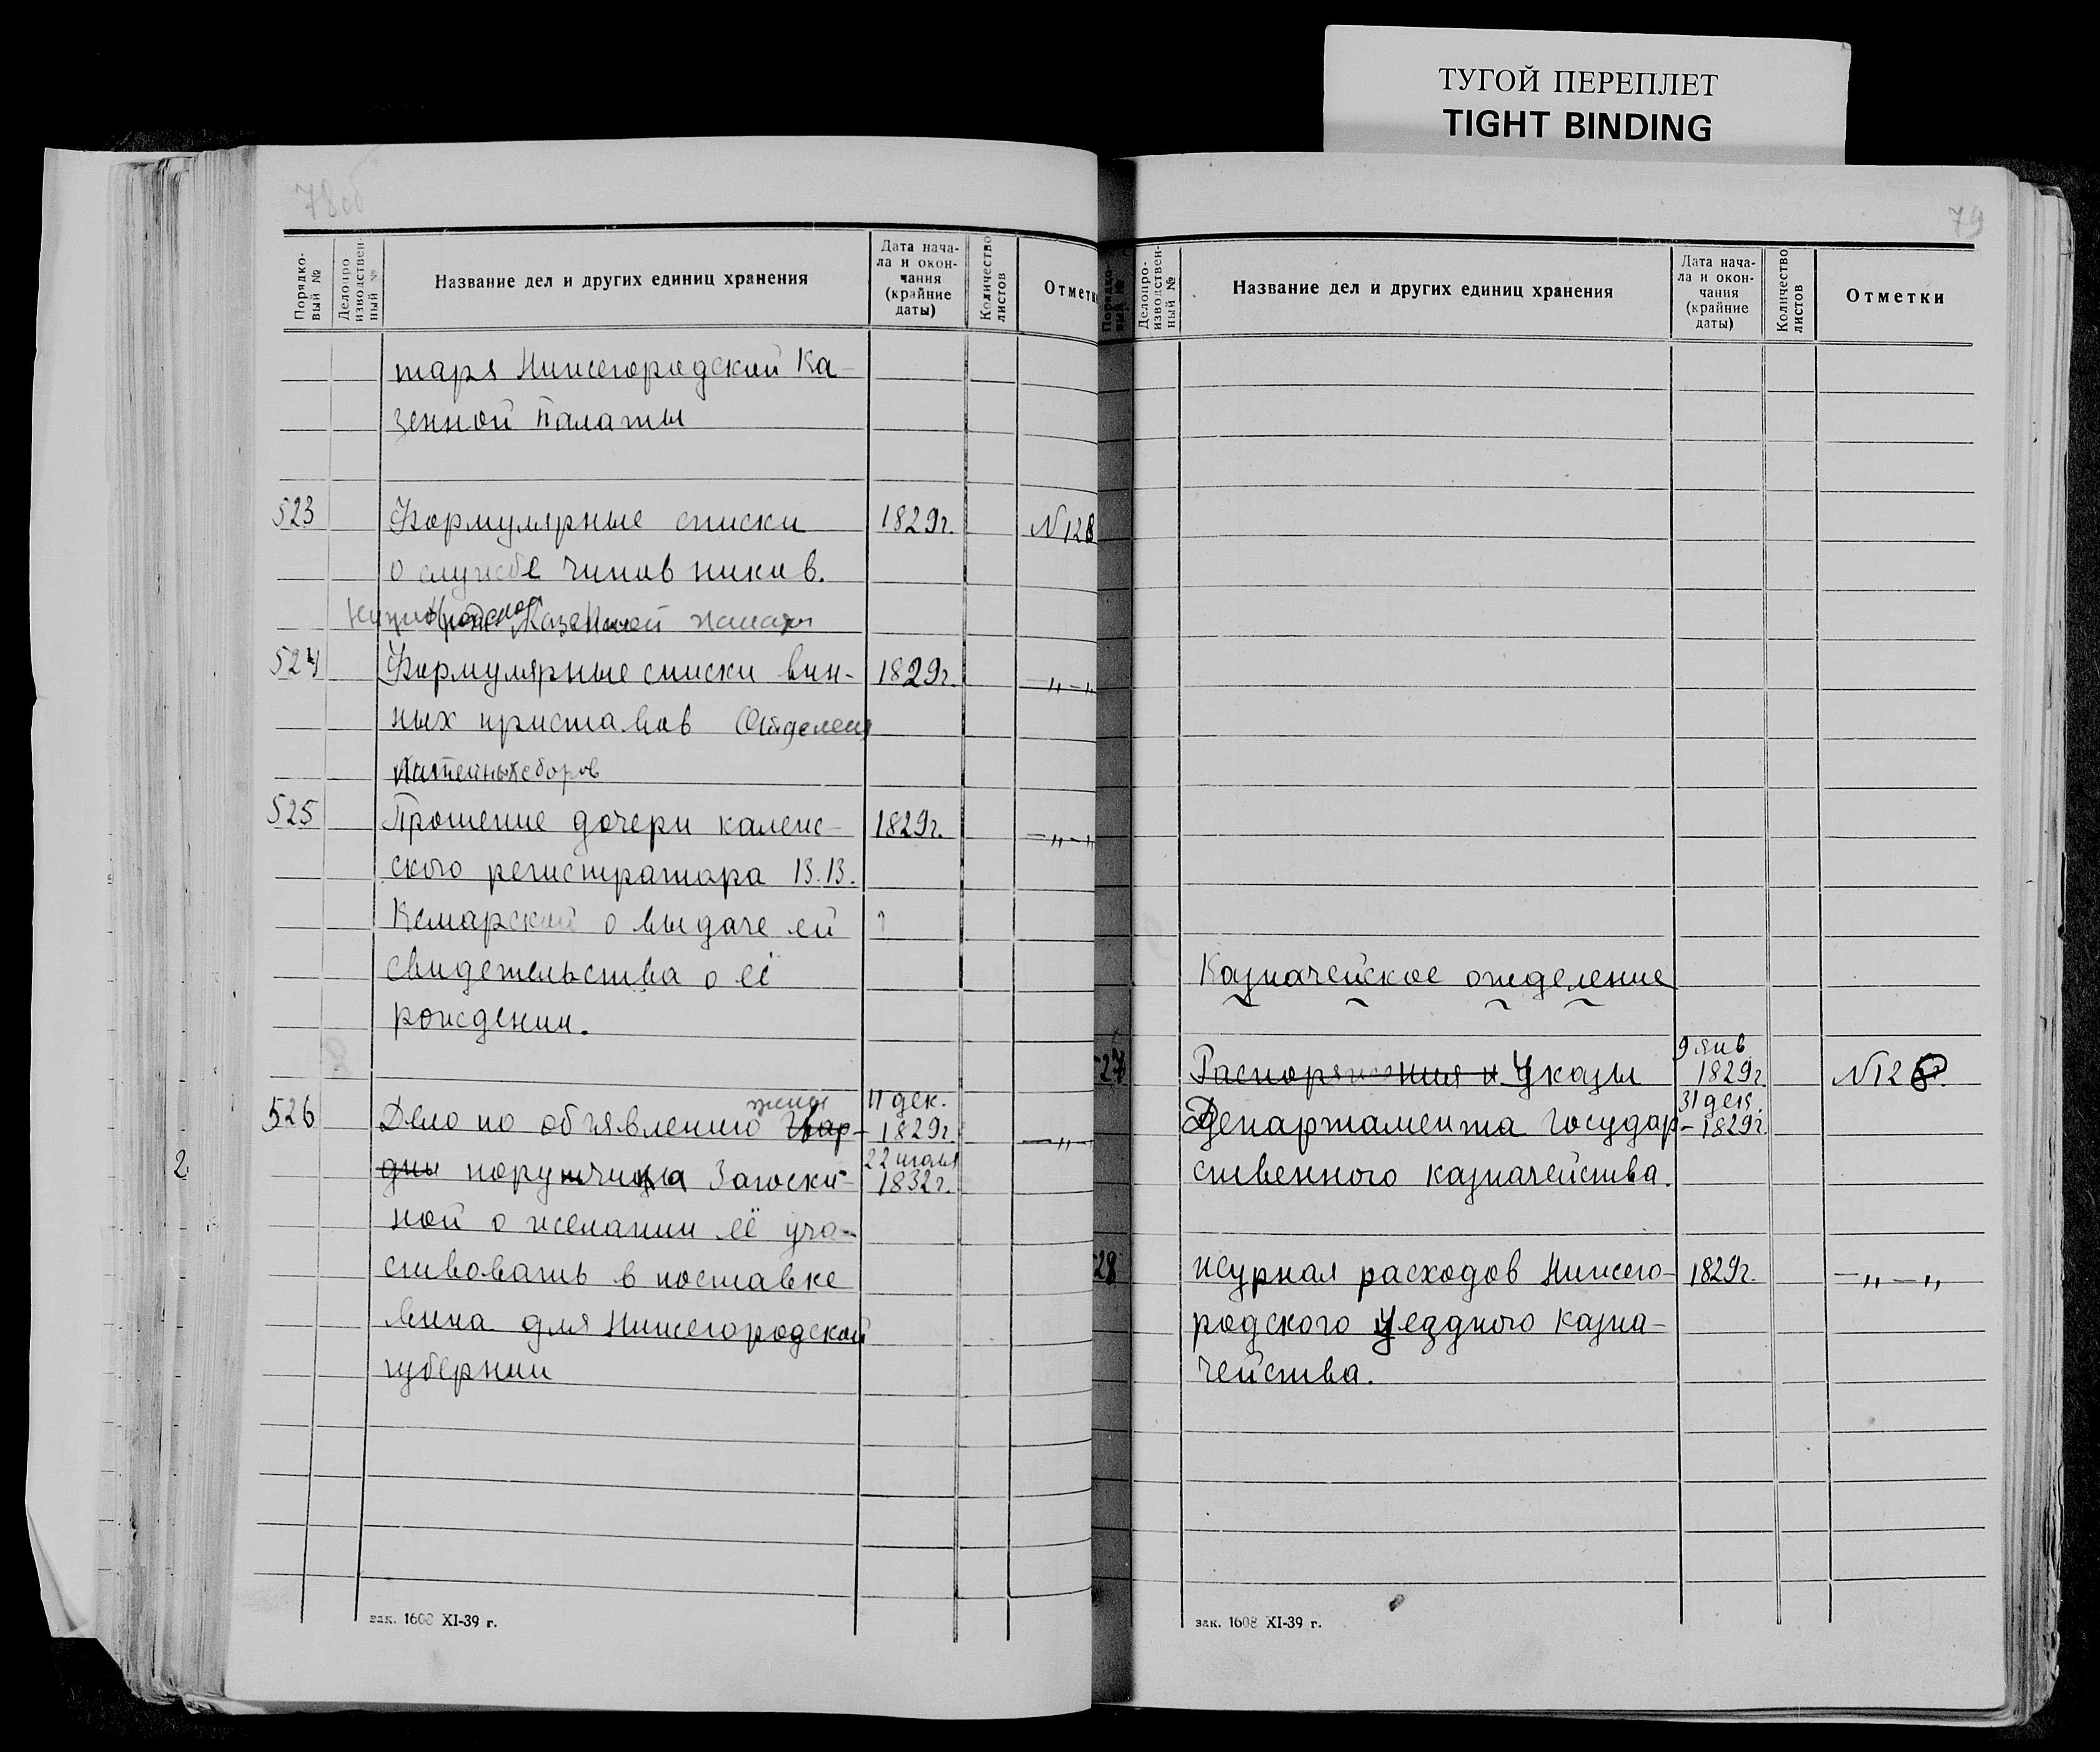 ТУГОЙ ПЕРЕПЛЕТ
TIGHT BINDING
78об
Порядко-
вый №
Делопро
изводствен-
ный №
Название дел и других единиц хранения
Дата нача-
ла и окон-
чания
(крайние
даты)
Количество
листов
Отметк
таря Нижегородской Ка-
зенной палаты
523 Формулярные списки 1829г. N128
о службе чиновников.
Казенной палаты
524 Формулярные списки вин- 1829г. —„—„
ных приставов Отделен
питейных сборов
525 Прошение дочери колеж- 1829г. —„—„
ского регистратора В.В.
Кемарской о выдаче ей
свидетельства о её
рождении.
526 Дело по объявлению жены Гвар- 11 дек. 1829г. —„—
дии поручика Загоски- 22 июля 1832г.
ной о желании её уча-
ствовать в поставке
вина для Нижегородской
губернии
2
зак. 1608 XI-39 г.
79
Порядко-
вый №
Делопро-
изводствен-
ный №
Название дел и других единиц хранения
Дата нача-
ла и окон-
чания
(крайние
даты)
Количество
листов
Отметки
Казначейское отделение
27 Распоряжения и Указы 9 янв 1829г.
Департамента Государ- 31 дек. 1829г.
ственного казначейства.
28 Журнал расходов Нижего- 1829г. —„—„
родского Уездного казна-
чейства.
зак. 1608 XI-39 г.